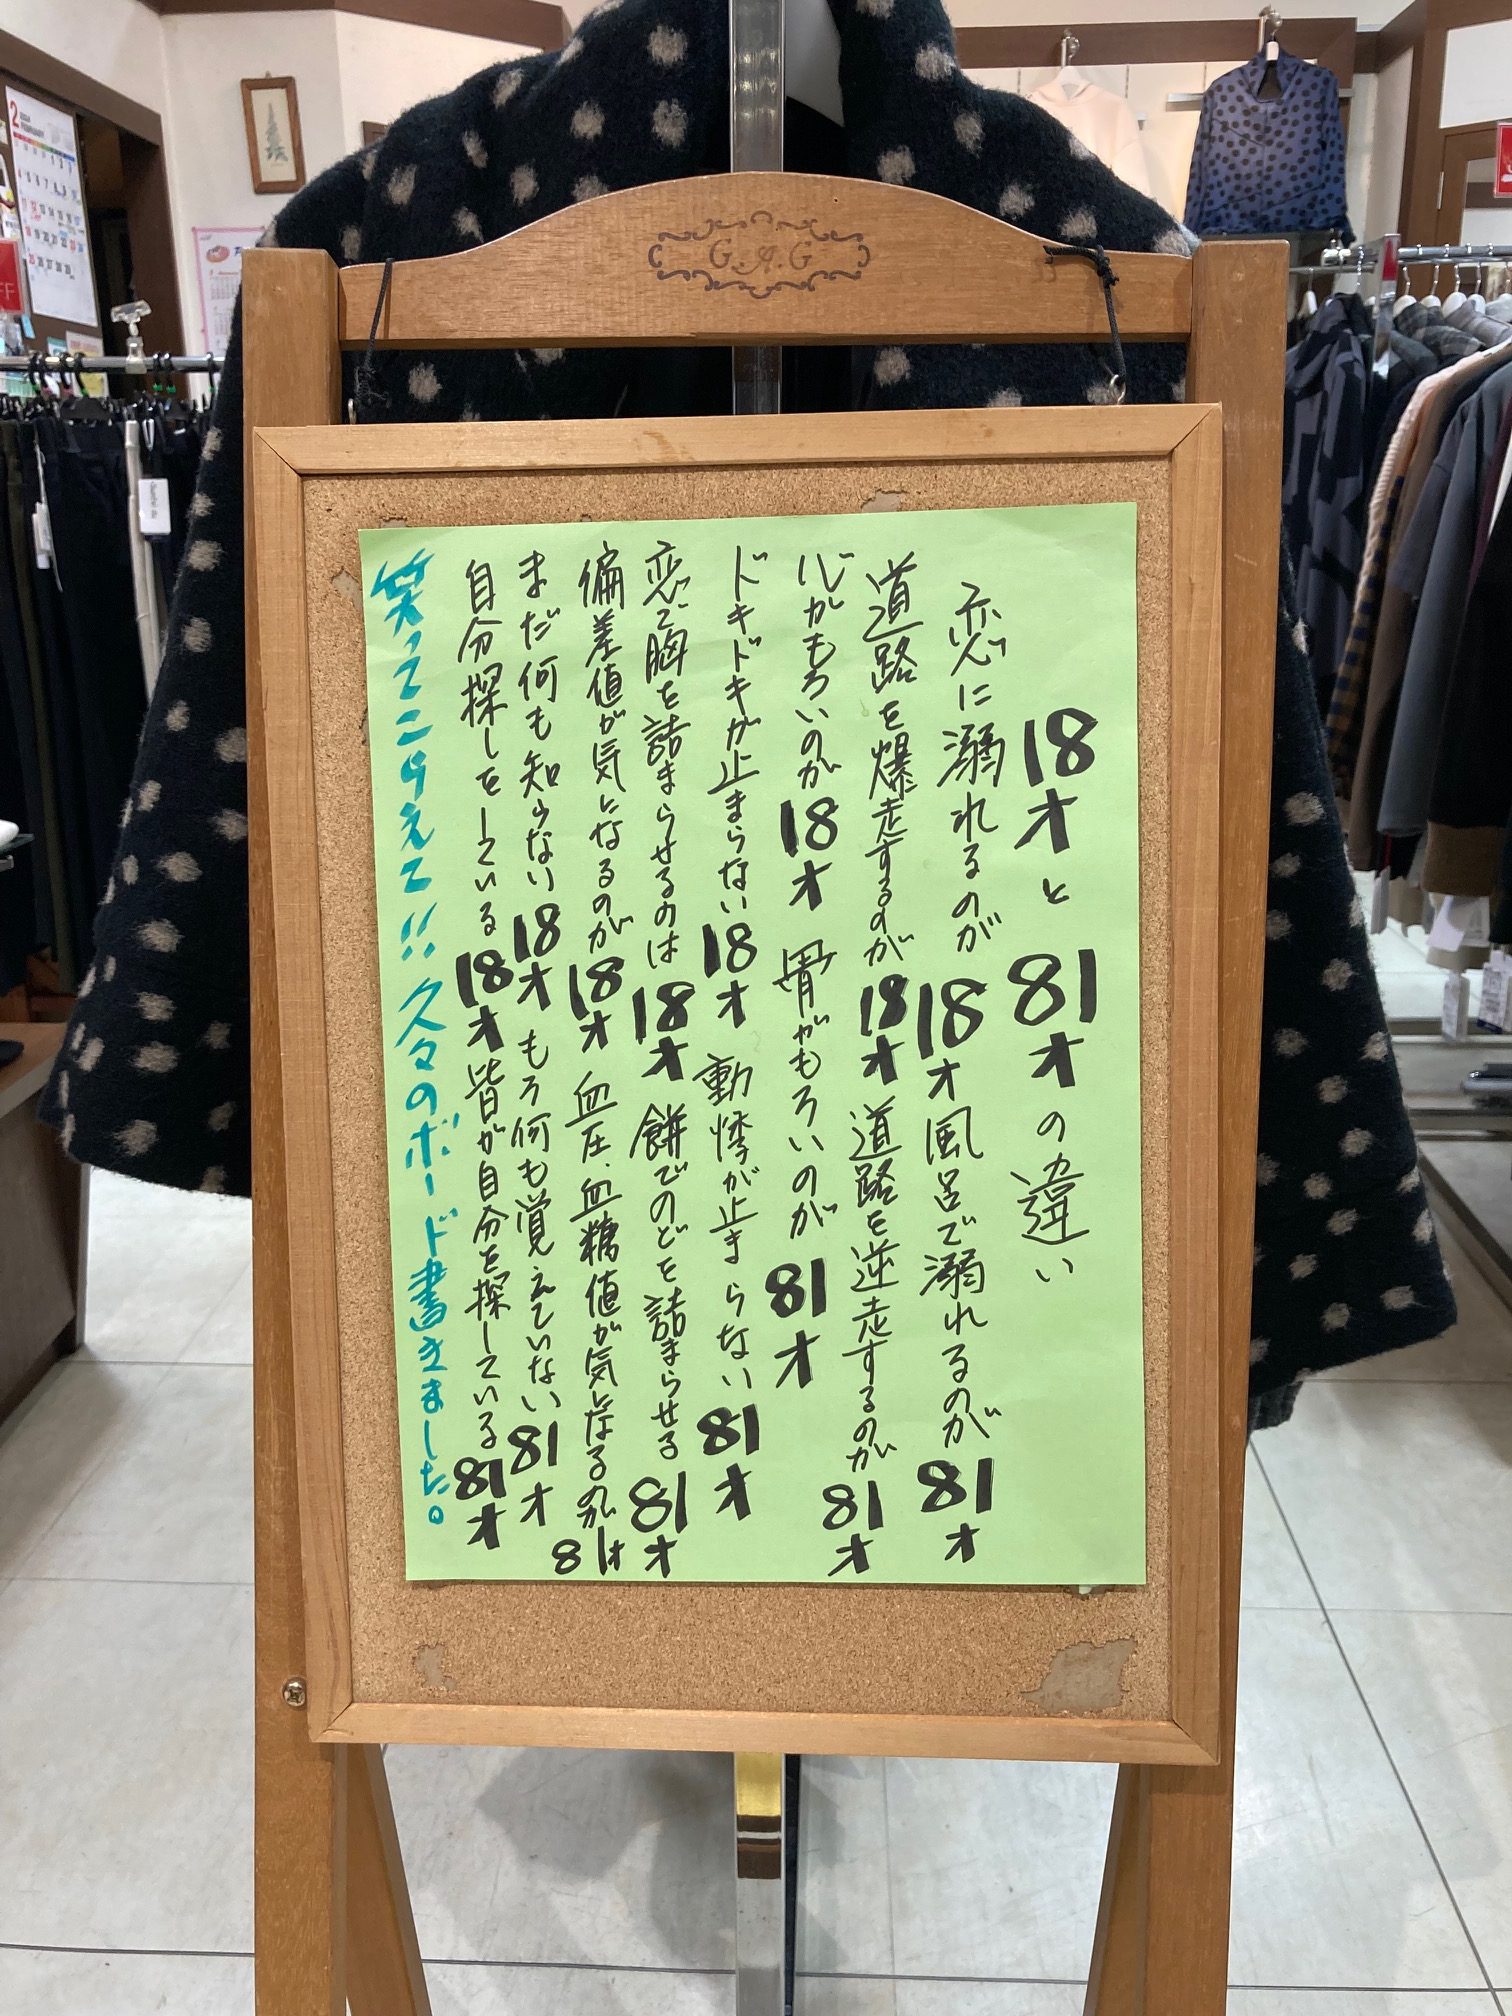 G.A.G
18才と81才の違い
恋に溺れるのが18才 風呂で溺れるのが81才
道路を爆走するのが18才 道路を逆走するのが81才
心がもろいのが18才 骨がもろいのが81才
ドキドキが止まらない18才 動悸が止まらない81才
恋で胸を詰まらせるのは18才 餅でのどを詰まらせる81才
偏差値が気になるのが18才 血圧、血糖値が気になるのが81才
まだ何も知らない18才 もう何も覚えていない81才
自分探しをしている18才 皆が自分を探している81才
笑ってこらえて!! 久々のボード書きました。
2